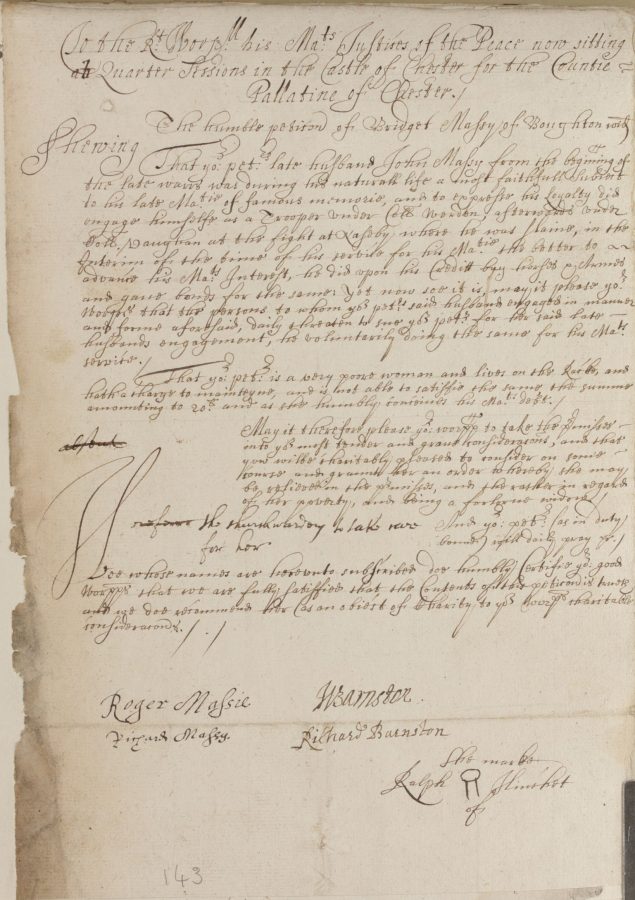 To the Rt Worpll his Mats Justices of the Peace now sitting
att Quarter Sessions in the Castle of Chester for the Countie
Pallatine of Chester./
The humble peticon of Bridget Massy of Boughton widd
Shewing
That yor petrs late husband John Massy from the begining of
the late warrs was during his naturall life a most faithfull subiect
to his late Matie of famous memorie, and to expresse his loyalty did
engage himselfe as a Trooper under Coll Werden, afterwards under
Coll. Vaughan at the fight at Naseby where he was slaine, in the
Interim of the time of his service for his Matie the better to
advance his Mats Interest, he did upon his Creditt buy horses & Armes
and gave bonds for the same. Yet now see it is, may it please yor
Worpps that the persons to whom yor petrs said husband engaged in manner
and forme aforesaid, daily threaten to sue yor petr for her said late
husbands engagement, he volunterily doing the same for his Mats
service./
That yor petr is a very poore woman and lives on the Racke, and
hath a charge to mainteyne, and is not able to satisfie the same the summe
amounting to 20li and as she humbly conceives his Mats debt.
May it therefore please yor worpps to take the premises
into yor most tender and grave Consideracons, and that
you wilbe charitably pleased to consider on some
course and graunt her an order whereby she may
be releived in the premises, and the rather in regard
of her poverty, and being a forlorne widow
absent
referre the churchwardens to take care
for her
And yor petr (as in duty
bound) will daily pray &c:/
Wee whose names are hereunto subscribed doe humbly Certifie yor good
Worpps that we are fully satisfied that the Contents of the peticon is truth
and we doe recommend her (as an obiect of Charity) to yor Worpps charitable
consideracons././
Roger Massie WBarnston
Richard Massey Richard Barnston
The marke
Ralph
of
143